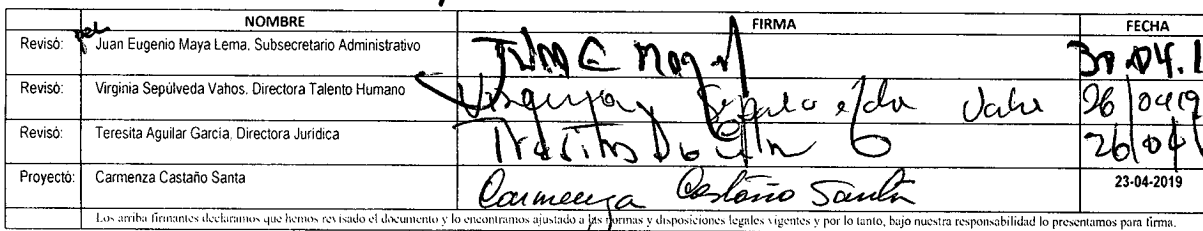 NOMBRE FIRMA FECHA
Revisó: Juan Eugenio Maya Lema. Subsecretario Administrativo 30.04.1
Revisó: Virginia Sepúlveda Vahos. Directora Talento Humano 26/0419
Revisó: Teresita Aguilar García, Directora Jurídica 26/04/
Proyectó: Carmenza Castaño Santa Carmenza Castaño Santa 23-04-2019
Los arriba firmantes declaramos que hemos revisado el documento y lo encontramos ajustado a las normas y disposiciones legales vigentes y por lo tanto, bajo nuestra responsabilidad lo presentamos para firma.